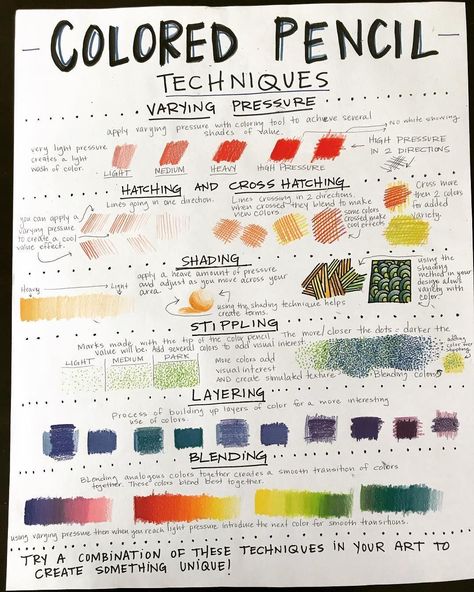 COLORED PENCIL
TECHNIQUES
VARYING PRESSURE
apply varying pressure with coloring tool to achieve several
shades of value.
No white showing
very light pressure
creates a light
wash of color.
LIGHT
MEDIUM
HEAVY
HIGH PRESSURE
HIGH PRESSURE
IN 2 DIRECTIONS
HATCHING AND CROSS HATCHING
Lines going in one direction.
Lines crossing in 2 directions.
when crossed they blend to make
new colors.
Cross more
then 2 colors
for added
variety.
you can apply a
varying pressure
to create a cool
value effect.
some colors
crossed make
cool effects
SHADING
Heavy
Light
apply a heave amount of pressure
and adjust as you move across your
area.
using the shading technique helps
create forms.
using the
shading
method in your
design allows
variety with
color.
STIPPLING
Marks made, with the tip of the color pencil. The more/closer the dots = darker the
value will be. Add several colors to add visual interest.
adding
color over
stippling
LIGHT
MEDIUM
DARK
More colors add
visual interest
AND create simulated texture
Blending colors
LAYERING
Process of building up layers of color for a more interesting
use of colors.
BLENDING
Blending analogous colors together creates a smooth transition of colors
together. These colors blend best together.
using varying pressure then when you reach light pressure introduce the next color for smooth transitions.
TRY A COMBINATION OF THESE TECHNIQUES IN YOUR ART TO
CREATE SOMETHING UNIQUE!